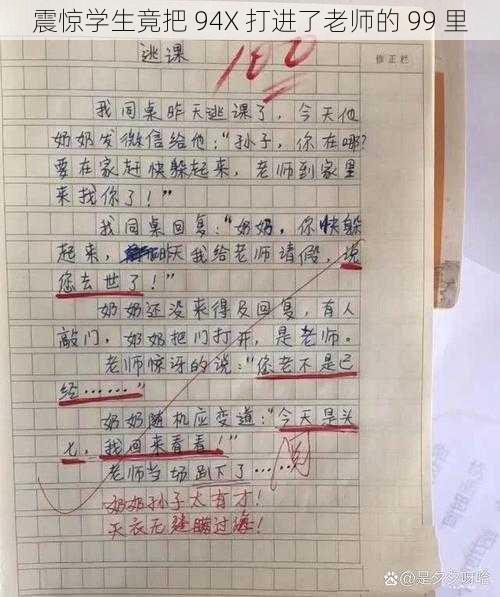 震惊学生竟把 94X 打进了老师的 99 里
逃课
100
修正栏
我同桌昨天逃课了，今天他
奶奶发微信给他："孙子，你在哪？
要在家赶快躲起来，老师到家里
来找你了！"
我同桌回复："奶奶，你快躲
起来，昨天我给老师请假，说
您去世了！"
奶奶还没来得及回复，有人
敲门，奶奶把门打开，是老师。
老师惊讶的说："您老不是已
经……"
奶奶随机应变道："今天是头
七，我回来看看！"
老师当场趴下了……
奶奶孙子太有才！
天衣无缝瞒过海！
@是夕夕呀哈